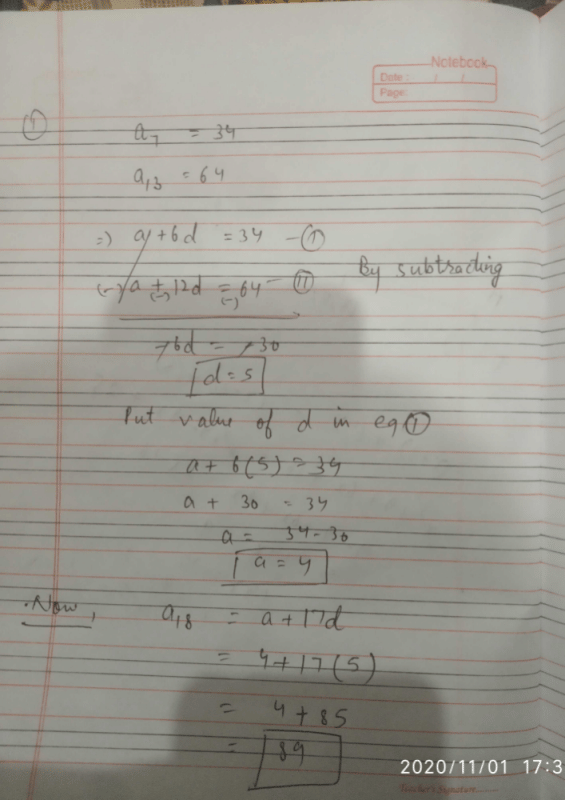 Notebook
Date : / /
Page:
① a₇ = 34
a₁₃ = 64
=) a + 6d = 34 - ①
(-) a + 12d = 64 - ⑪
(-) (-)
By subtracting
-6d = -30
d = 5
Put value of d in eq ①
a + 6(5) = 34
a + 30 = 34
a = 34 - 30
a = 4
Now, a₁₈ = a + 17d
= 4 + 17(5)
= 4 + 85
= 89
2020/11/01 17:3
Teacher's Signature